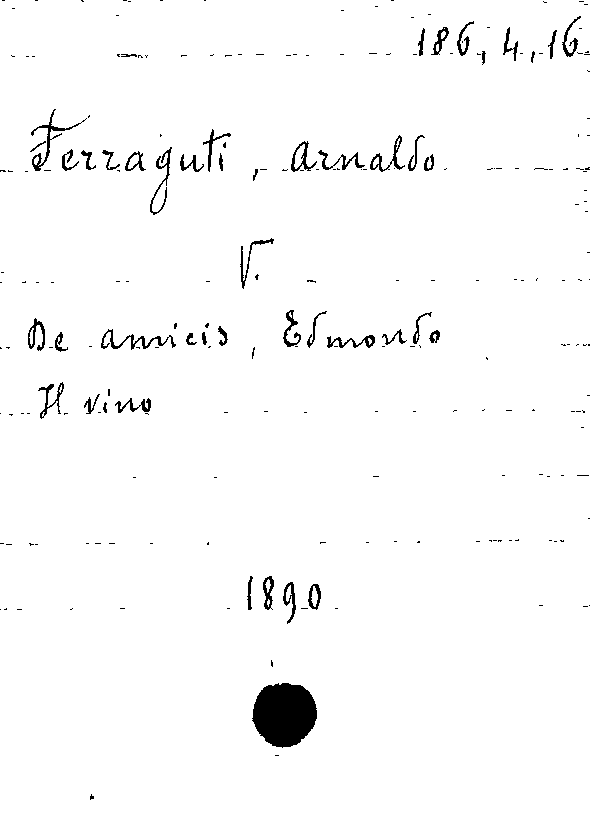 186, 4, 16
Ferraguti, Arnaldo
V.
De Amicis, Edmondo
Il vino
1890